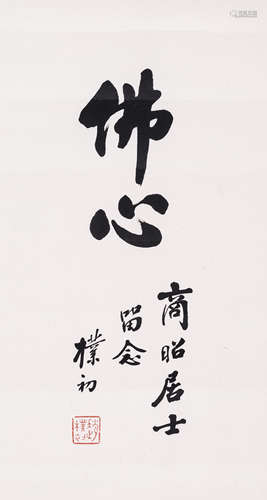 佛心
商昭居士
留念
樸初